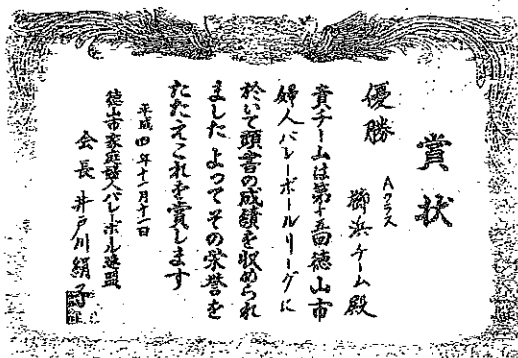 賞状
Aクラス
優勝 櫛浜チーム殿
貴チームは第十五回徳山市
婦人バレーボールリーグに
於いて頭書の成績を収められ
ました よってその栄誉を
たたえこれを賞します
平成四年十一月十一日
徳山市家庭婦人バレーボール連盟
会長 井戸川絹子